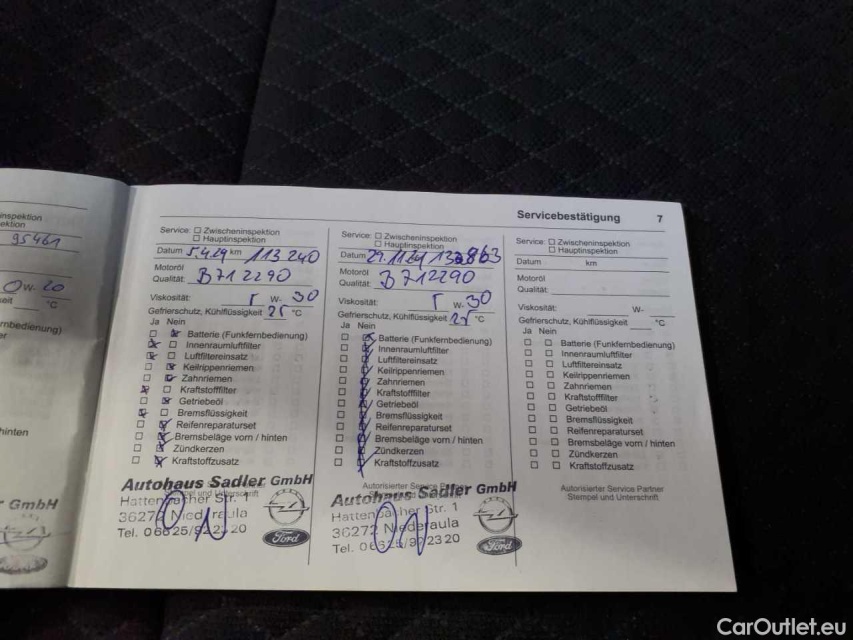 Servicebestätigung 7
nspektion
ektion
95461
0 W- 20
eit °C
rnbedienung)
er
hinten
r GmbH
Service: Zwischeninspektion
Hauptinspektion
Datum km 113 240
Motoröl
Qualität: B712290
Viskosität: W- 30
Gefrierschutz, Kühlflüssigkeit 25 °C
Ja Nein
Batterie (Funkfernbedienung)
Innenraumluftfilter
Luftfiltereinsatz
Keilrippenriemen
Zahnriemen
Kraftstofffilter
Getriebeöl
Bremsflüssigkeit
Reifenreparaturset
Bremsbeläge vorn / hinten
Zündkerzen
Kraftstoffzusatz
Autohaus Sadler GmbH
Stempel und Unterschrift
Hattenbacher Str. 1
36272 Niederaula
Tel. 06625/922320
Ford
Service: Zwischeninspektion
Hauptinspektion
Datum
Motoröl
Qualität: B712290
Viskosität: W- 30
Gefrierschutz, Kühlflüssigkeit 25 °C
Ja Nein
Batterie (Funkfernbedienung)
Innenraumluftfilter
Luftfiltereinsatz
Keilrippenriemen
Zahnriemen
Kraftstofffilter
Getriebeöl
Bremsflüssigkeit
Reifenreparaturset
Bremsbeläge vorn / hinten
Zündkerzen
Kraftstoffzusatz
Autorisierter Service Partner
Autohaus Sadler GmbH
Hattenbacher Str. 1
36272 Niederaula
Tel. 06625/922320
Ford
Service: Zwischeninspektion
Hauptinspektion
Datum km
Motoröl
Qualität:
Viskosität: W-
Gefrierschutz, Kühlflüssigkeit °C
Ja Nein
Batterie (Funkfernbedienung)
Innenraumluftfilter
Luftfiltereinsatz
Keilrippenriemen
Zahnriemen
Kraftstofffilter
Getriebeöl
Bremsflüssigkeit
Reifenreparaturset
Bremsbeläge vorn / hinten
Zündkerzen
Kraftstoffzusatz
Autorisierter Service Partner
Stempel und Unterschrift
CarOutlet.eu